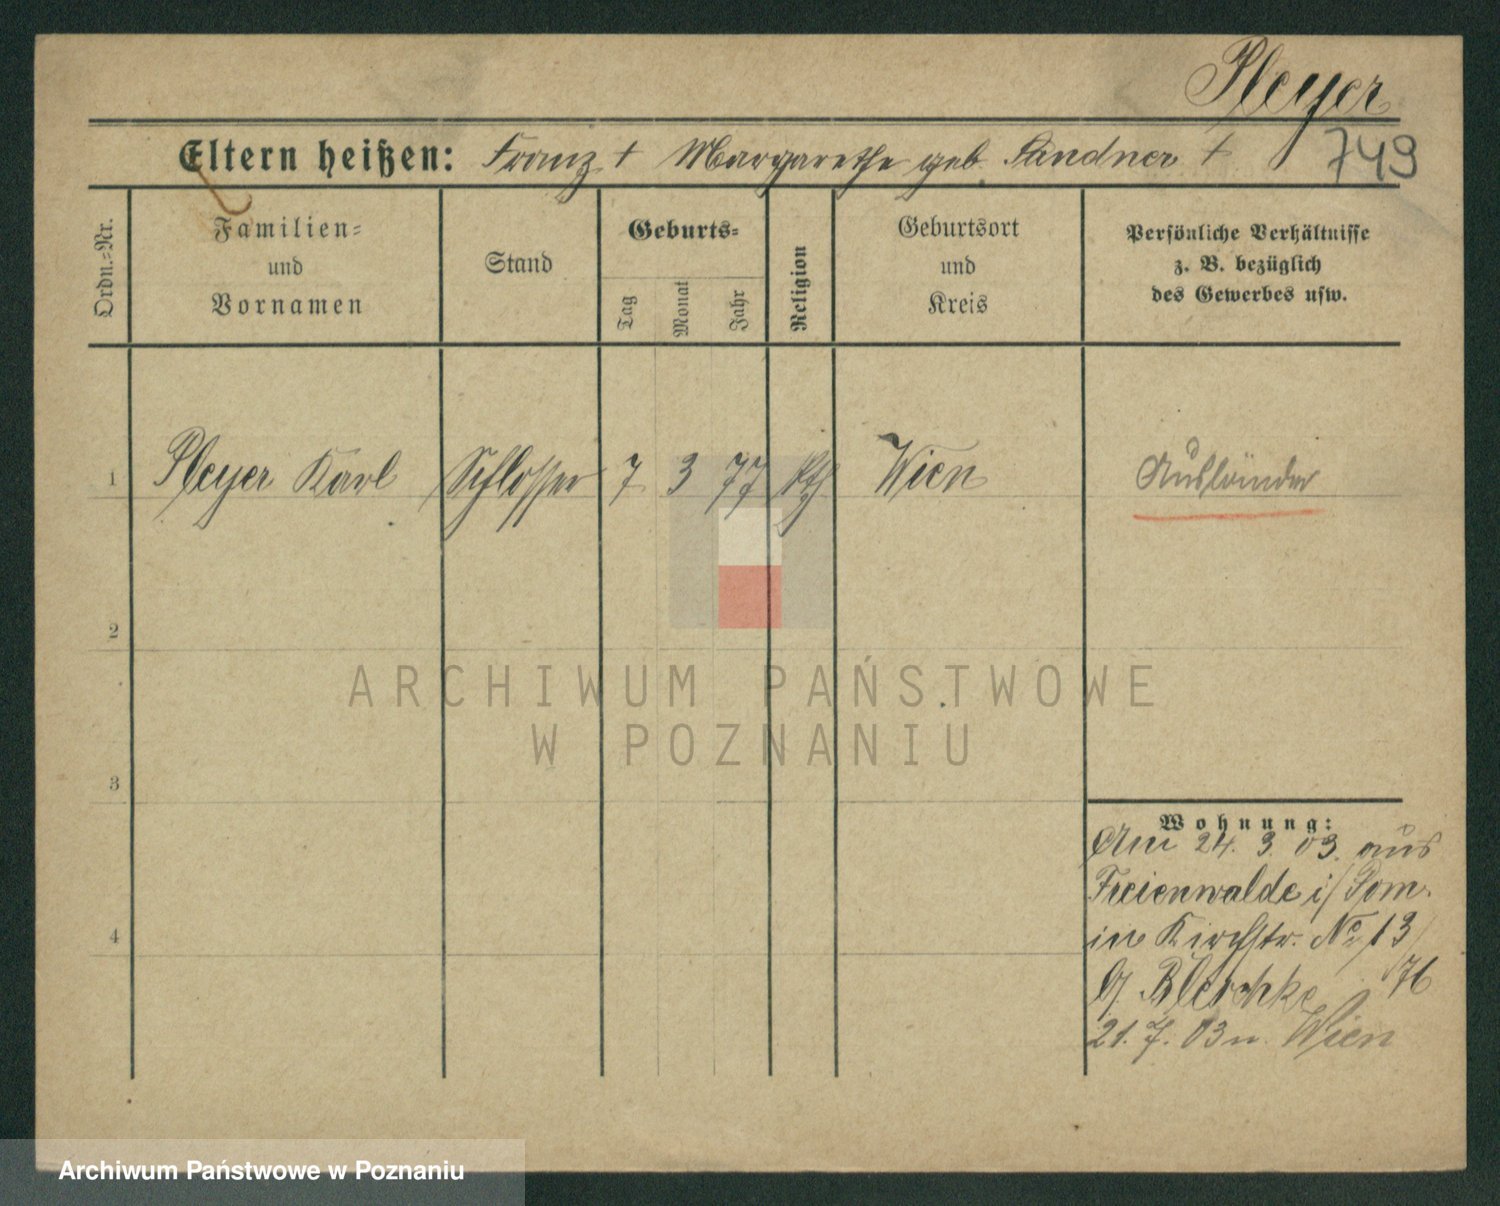 Pleyer
Eltern heißen: Franz † Margarethe geb. Sandner †
749
Ordn.=Nr.
Familien=
und
Vornamen
Stand
Geburts=
Tag
Monat
Jahr
Religion
Geburtsort
und
Kreis
Persönliche Verhältnisse
z. B. bezüglich
des Gewerbes usw.
1 Pleyer Karl Schlosser 7 3 77 kth Wien Ausländer
2
3
4
ARCHIWUM PAŃSTWOWE
W POZNANIU
Wohnung:
Am 24. 3. 03. aus
Freienwalde i/Pom.
in Kirchstr. No 13/
76
b/ Bleschke
21. 7. 03 n. Wien
Archiwum Państwowe w Poznaniu